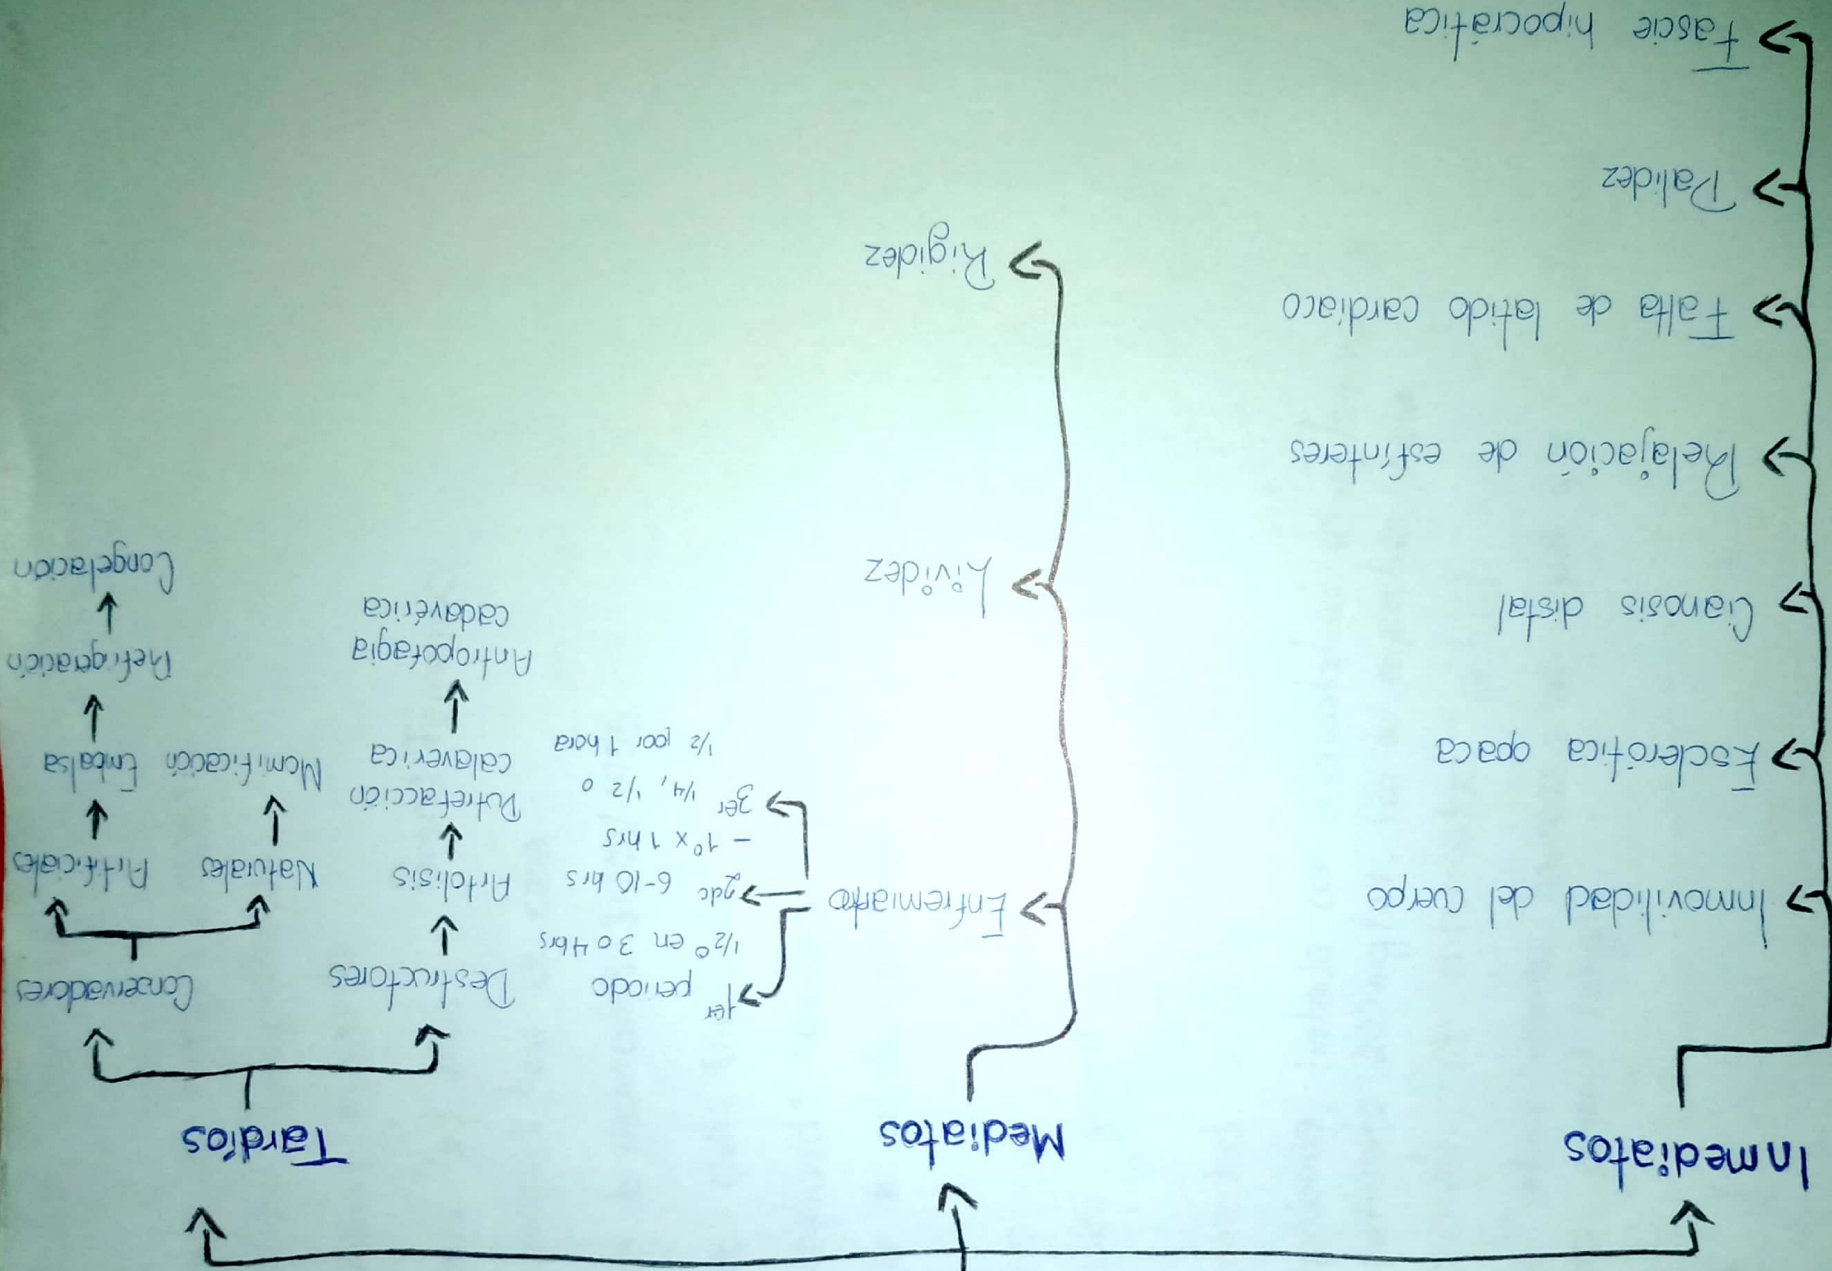 Inmediatos
Inmovilidad del cuerpo
Esclerótica opaca
Cianosis distal
Relajación de esfínteres
Falta de latido cardiaco
Palidez
Fascie hipocrática
Mediatos
Enfremiamto
1er periodo
1/2° en 3 o 4 hrs
2do 6-10 hrs
- 1° x 1 hrs
3er 1/4, 1/2 o
1/2 por 1 hora
Lividez
Rigidez
Tardíos
Destructores
Artolisis
Putrefacción
calaverica
Antropofagia
cadavérica
Conservadores
Naturales
Momificación
Artificiales
Embalsa
Refrigeración
Congelación